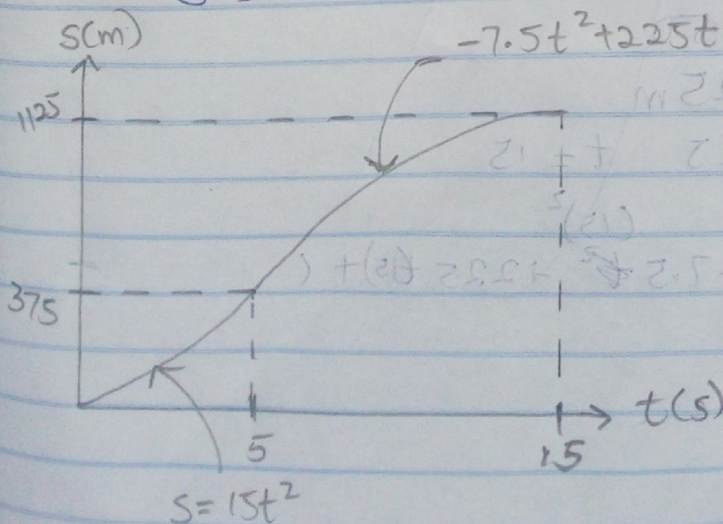 s(m)
-7.5t²+225t
1125
375
t(s)
5
15
s=15t²